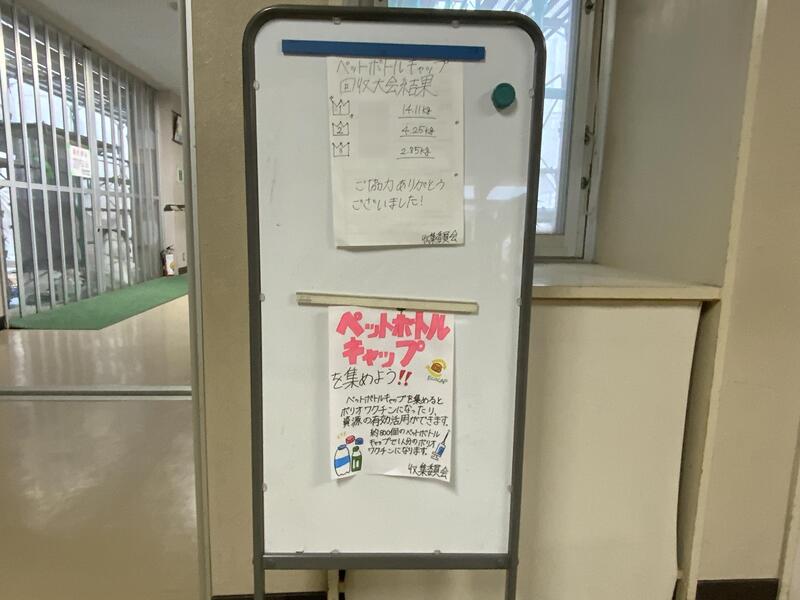 ペットボトルキャップ
回収大会結果
1
14.11kg
2
4.25kg
3
2.85kg
ご協力ありがとう
ございました!
収集委員会
ペットボトル
キャップ
を集めよう!!
ECOCAP
ペットボトルキャップを集めると
ポリオワクチンになったり、
資源の有効活用ができます。
約800個のペットボトル
キャップで1人分のポリオ
ワクチンになります。
収集委員会